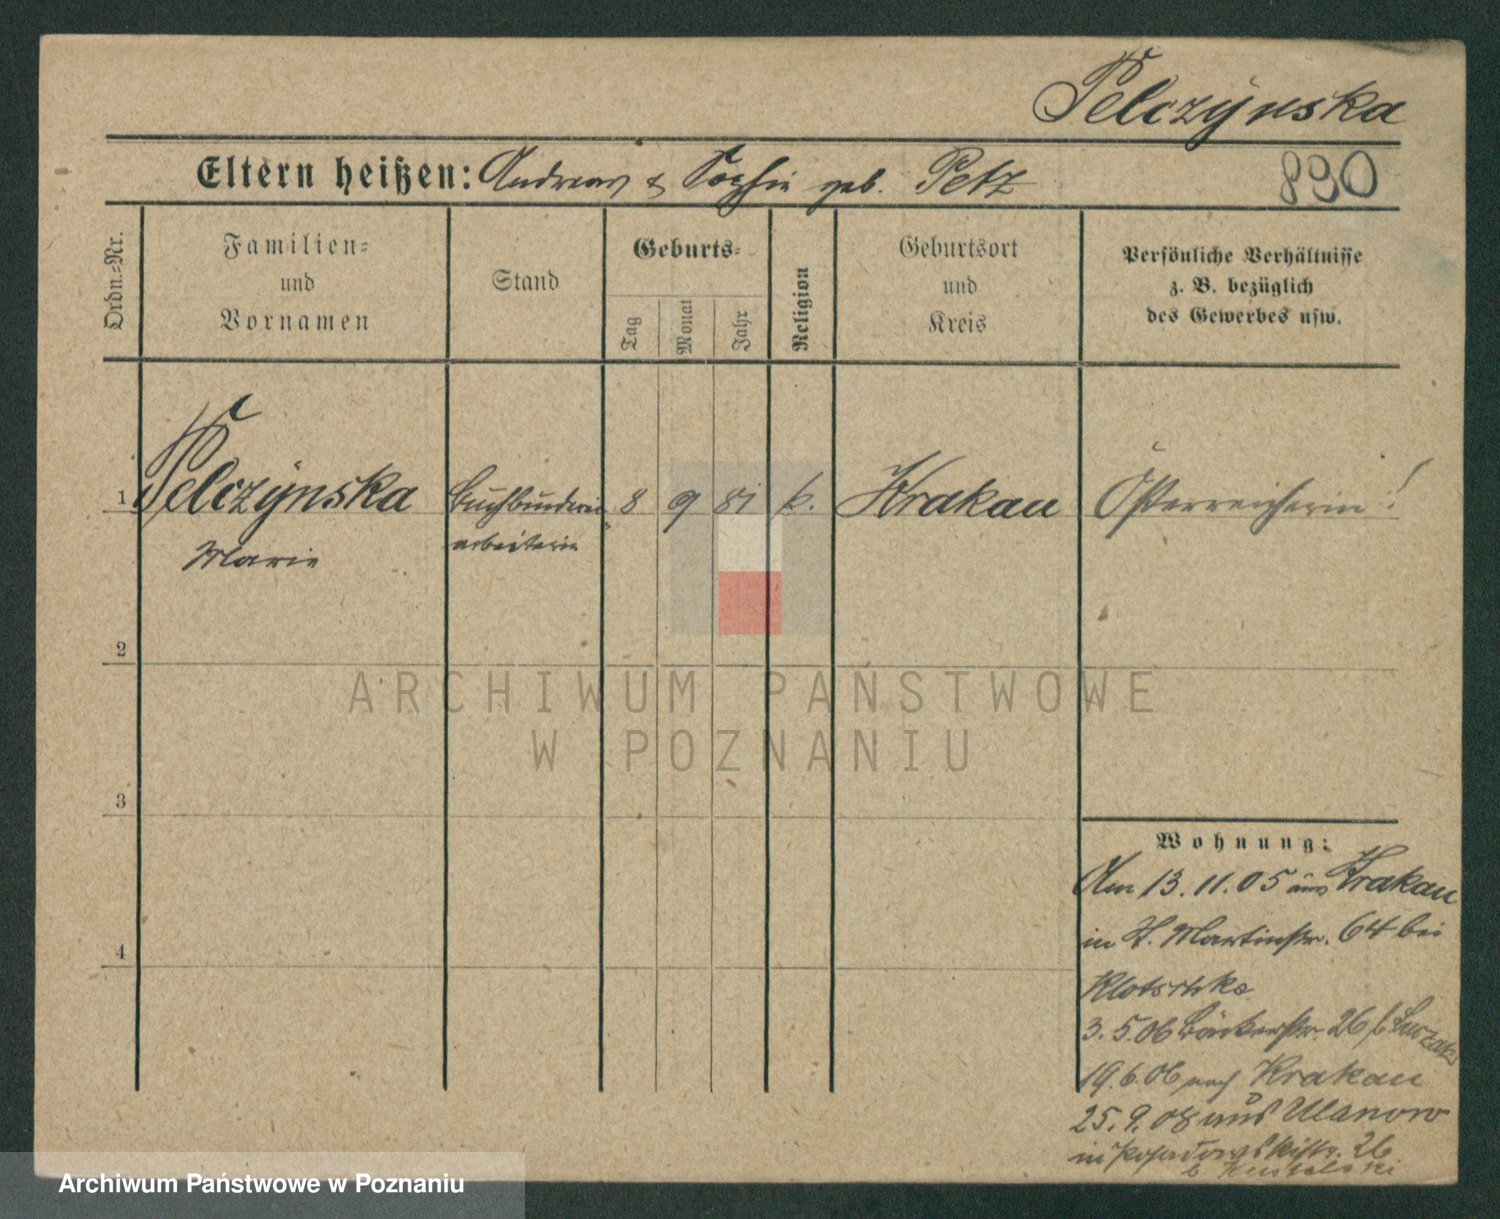 Pelczynska
Eltern heißen: Andreas & Sophie geb. Petz
890
Ordn.-Nr.
Familien-
und
Vornamen
Stand
Geburts-
Tag
Monat
Jahr
Religion
Geburtsort
und
Kreis
Persönliche Verhältnisse
z. B. bezüglich
des Gewerbes usw.
1 Pelczynska Buchbinderei 8 9 81 k. Krakau Österreicherin!
Marie arbeiterin
2
ARCHIWUM PAŃSTWOWE
W POZNANIU
3
Wohnung:
Am 13.11.05 aus Krakau
in St. Martinstr. 64 bei
Klotschke
3.5.06 Bäckerstr. 26 b.
19.6.06 nach Krakau
25.9.08 aus Ulanow
in 26
b.
4
Archiwum Państwowe w Poznaniu